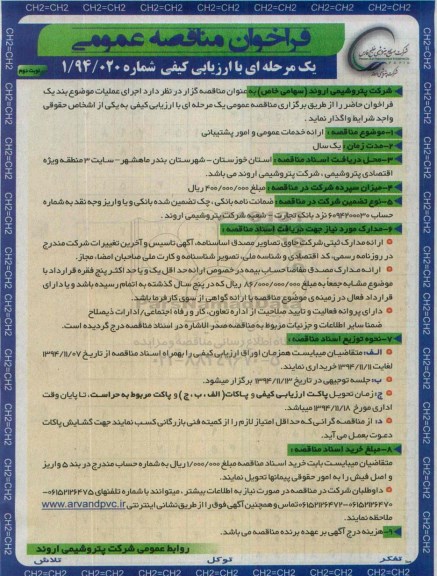 CH2=CH2 CH2=CH2 CH2=CH2 CH2=CH2 CH2=CH2 CH2=CH2 CH2=CH2
فراخوان مناقصه عمومی
یک مرحله ای با ارزیابی کیفی شماره ۱/۹۴/۰۲۰
نوبت دوم
شرکت پتروشیمی اروند (سهامی خاص) به عنوان مناقصه گزار در نظر دارد اجرای عملیات موضوع بند یک
فراخوان حاضر را از طریق برگزاری مناقصه عمومی یک مرحله ای با ارزیابی کیفی به یکی از اشخاص حقوقی
واجد شرایط واگذار نماید.
۱-موضوع مناقصه: ارائه خدمات عمومی و امور پشتیبانی
۲-مدت زمان: یک سال
۳-محل دریافت اسناد مناقصه: استان خوزستان - شهرستان بندر ماهشهر - سایت ۳ منطقه ویژه
اقتصادی پتروشیمی، شرکت پتروشیمی اروند می باشد.
۴-میزان سپرده شرکت در مناقصه: مبلغ ۴۰۰/۰۰۰/۰۰۰ ریال
۵-نوع تضمین شرکت در مناقصه: ضمانت نامه بانکی، چک تضمین شده بانکی و یا واریز وجه نقد به شماره
حساب ۶۰۹۴۲۰۰۰۳۰ نزد بانک تجارت - شعبه شرکت پتروشیمی اروند.
۶-مدارک مورد نیاز جهت دریافت اسناد مناقصه:
ارائه مدارک ثبتی شرکت حاوی تصاویر مصدق اساسنامه، آگهی تاسیس و آخرین تغییرات شرکت مندرج
در روزنامه رسمی، کد اقتصادی و شناسه ملی، تصویر شناسنامه و کارت ملی صاحبان امضاء مجاز.
ارائه مدارک مصدق مفاصا حساب بیمه در خصوص ارائه حد اقل یک و یا حد اکثر پنج فقره قرارداد با
موضوع مشابه جمعا به مبلغ ۸۶/۰۰۰/۰۰۰/۰۰۰ ریال که در پنج سال گذشته به اتمام رسیده باشد و یا دارای
قرارداد فعال در زمینه ی موضوع مناقصه با ارائه گواهی از سوی کارفرما باشد.
دارای پروانه فعالیت و تایید صلاحیت از اداره تعاون، کار و رفاه اجتماعی / ادارات ذیصلاح
ضمنا سایر اطلاعات و جزئیات مربوط به مناقصه صدرالاشاره در اسناد مناقصه درج گردیده است.
۷-نحوه توزیع اسناد مناقصه:
الف: متقاضیان میبایست همزمان اوراق ارزیابی کیفی را بهمراه اسناد مناقصه از تاریخ ۱۳۹۴/۱۱/۰۷
لغایت ۱۳۹۴/۱۱/۱۱ خریداری نمایند.
ب: جلسه توجیهی در تاریخ ۱۳۹۴/۱۱/۱۳ برگزار میشود.
ج: زمان تحویل پاکت ارزیابی کیفی و پاکات( الف، ب، ج) و پاکت مربوط به حراست، تا پایان وقت
اداری مورخ ۱۳۹۴/۱۱/۱۸ میباشد.
د: از مناقصه گرانی که حداقل امتیاز لازم را از کمیته فنی بازرگانی کسب نمایند جهت گشایش پاکات
دعوت بعمل می آید.
۸-مبلغ خرید اسناد مناقصه:
متقاضیان میبایست بابت خرید اسناد مناقصه مبلغ ۱/۰۰۰/۰۰۰ ریال به شماره حساب مندرج در بند ۵ واریز
و اصل فیش را به امور حقوقی پیمانها تحویل نمایند.
داوطلبان شرکت در مناقصه در صورت نیاز به اطلاعات بیشتر، میتوانند با شماره تلفنهای ۰۶۱۵۲۱۲۶۴۷۵-
۰۶۱۵۲۱۲۶۴۷۰-۰۶۱۵۲۱۲۶۴۷۲ تماس و همچنین آگهی فوق را از طریق نشانی اینترنتی www.arvandpvc.ir
ملاحظه نمایند.
۹-هزینه درج آگهی بر عهده برنده مناقصه می باشد.
روابط عمومی شرکت پتروشیمی اروند
تفکر توکل تلاش